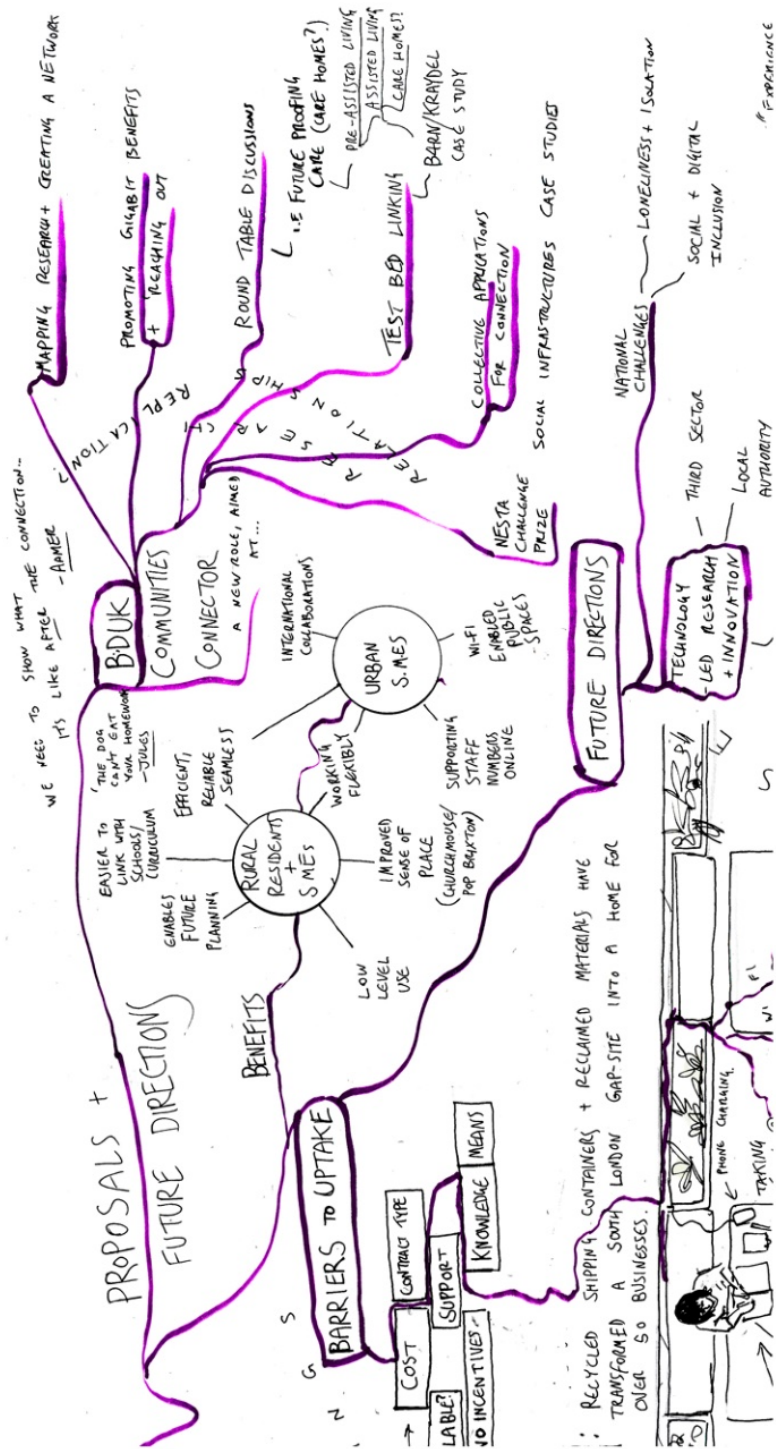 PROPOSALS +
FUTURE DIRECTIONS
WE NEED TO SHOW WHAT
IT'S LIKE AFTER THE CONNECTION...
- AAMER
B·DUK
COMMUNITIES
CONNECTOR
A NEW ROLE, AIMED
AT...
REPLICATION?
RESEARCH
RELATIONSHIPS
MAPPING RESEARCH + CREATING A NETWORK
PROMOTING GIGABIT BENEFITS
+ 'REACHING OUT
ROUND TABLE DISCUSSIONS
I.E FUTURE PROOFING
CARE (CARE HOMES?)
PRE-ASSISTED LIVING
ASSISTED LIVING
CARE HOMES?
TEST BED LINKING
BARN/KRAYDEL
CASE STUDY
COLLECTIVE APPLICATIONS
FOR CONNECTION
NESTA
CHALLENGE
PRIZE
SOCIAL INFRASTRUCTURES CASE STUDIES
BENEFITS
RURAL
RESIDENTS
+
SMES
ENABLES
FUTURE
PLANNING
EASIER TO
LINK WITH
SCHOOLS/
CURRICULUM
'THE DOG
CAN'T EAT
YOUR HOMEWORK
- JULES
EFFICIENT,
RELIABLE
SEAMLESS
WORKING
FLEXIBLY
IMPROVED
SENSE OF
PLACE
(CHURCHMOUSE/
POP BRIXTON)
LOW
LEVEL
USE
URBAN
S.M.ES
INTERNATIONAL
COLLABORATIONS
WI-FI
ENABLED
PUBLIC
-SPACES
SUPPORTING
STAFF
NUMBERS
ONLINE
N G S
BARRIERS TO UPTAKE
COST
CONTRACT TYPE
LABLE?
SUPPORT
NO INCENTIVES-
KNOWLEDGE
MEANS
FUTURE DIRECTIONS
NATIONAL
CHALLENGES
LONELINESS + ISOLATION
SOCIAL + DIGITAL
INCLUSION
TECHNOLOGY
-LED RESEARCH
+ INNOVATION
THIRD SECTOR
LOCAL
AUTHORITY
: RECYCLED SHIPPING CONTAINERS + RECLAIMED MATERIALS HAVE
TRANSFORMED A SOUTH LONDON GAP-SITE INTO A HOME FOR
OVER 50 BUSINESSES
PHONE CHARGING.
TAKING
WI FI
"EXPERIENCE